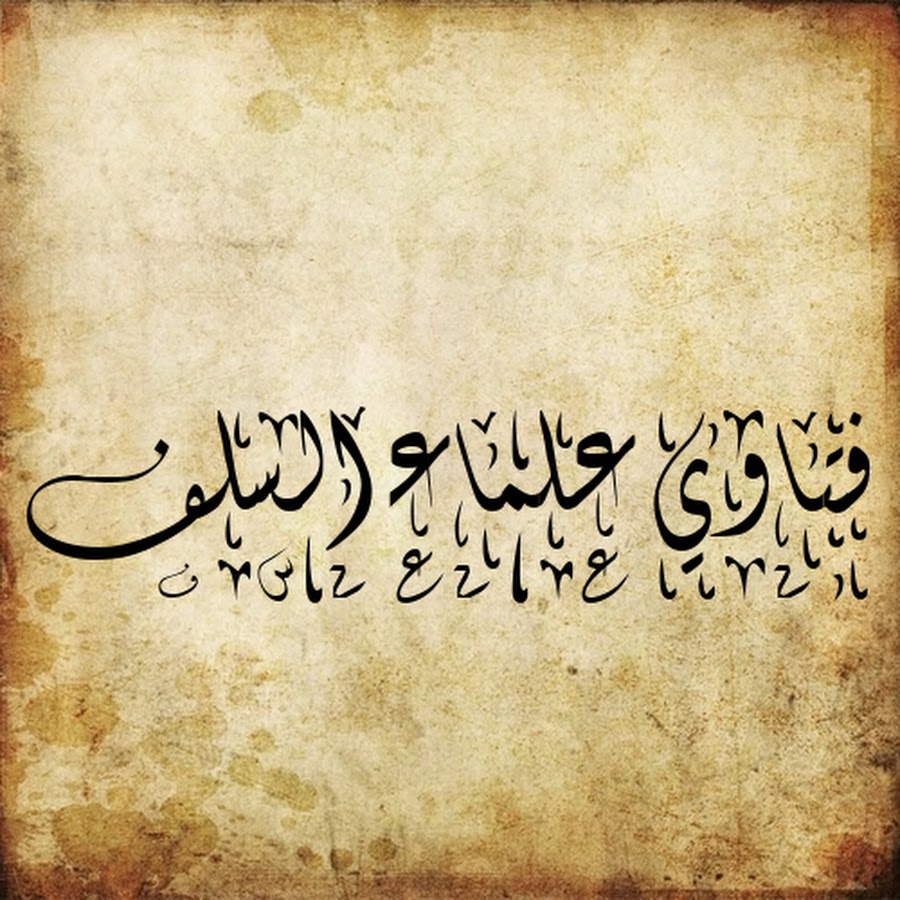 فتاوي علماء السلف